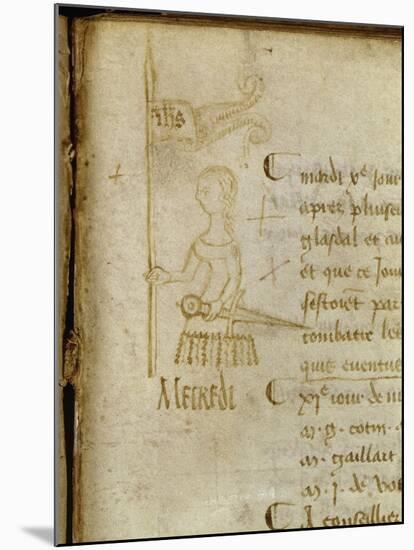 ihs
mardi xe jour
apres plusieu
glasdal et au
et que ce jour
sestoiet par
combatre les
quis eventue
MECREDI
xie iour de m
m. g. cotin
m. gaillart
m. J. de vo
A conseillier